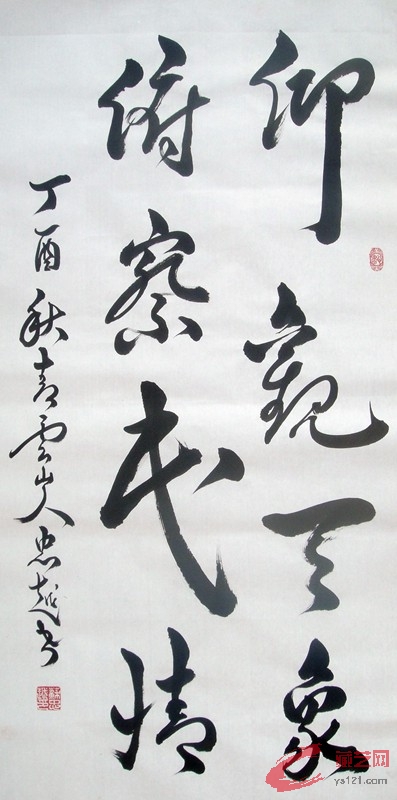 仰观天象
俯察民情
丁酉秋青云山人忠越书
艺网
ys121.com